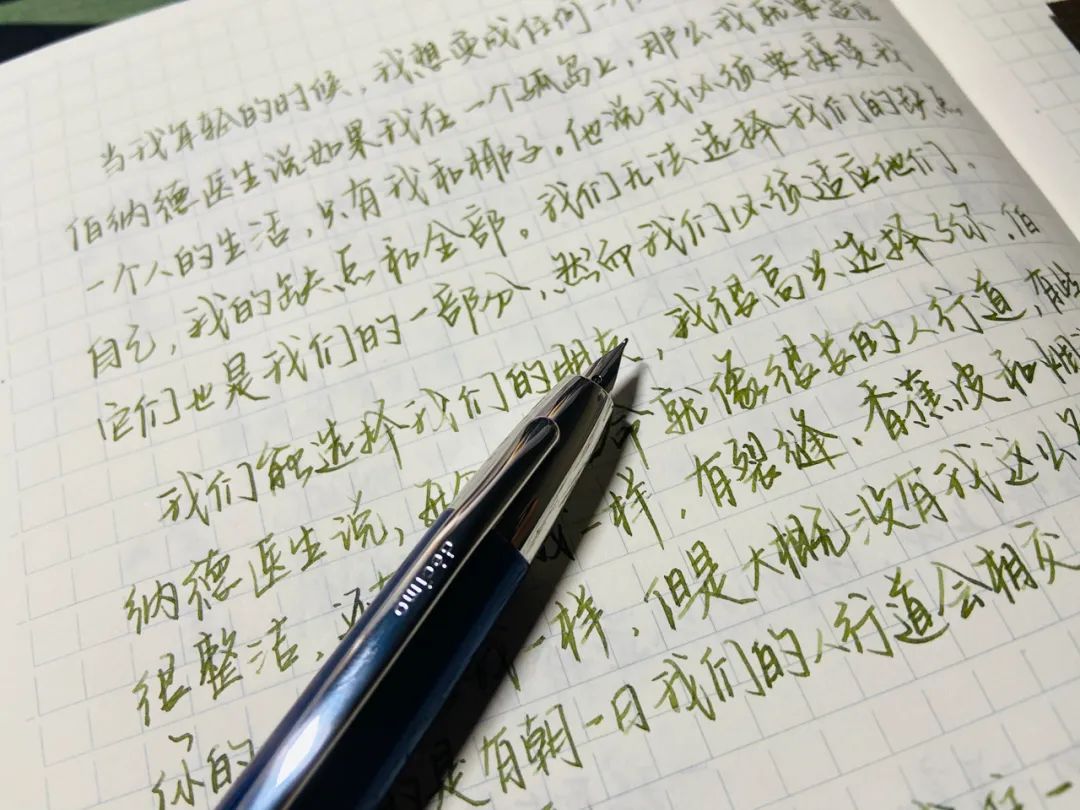 当我年轻的时候，我想变成任何一个
伯纳德医生说如果我在一个孤岛上，那么我就要适应
一个人的生活，只有我和椰子。他说我必须要接受我
自己，我的缺点和全部。我们无法选择我们的缺点
它们也是我们的一部分，然而我们必须适应他们。
我们能选择我们的朋友，我很高兴选择了你，伯
纳德医生说，每个 就像很长的人行道，有些
很整洁，还 一样，有裂缝、香蕉皮和烟
你的 我一样，但是大概没有我这么
是有朝一日我们的人行道会相交
décimo